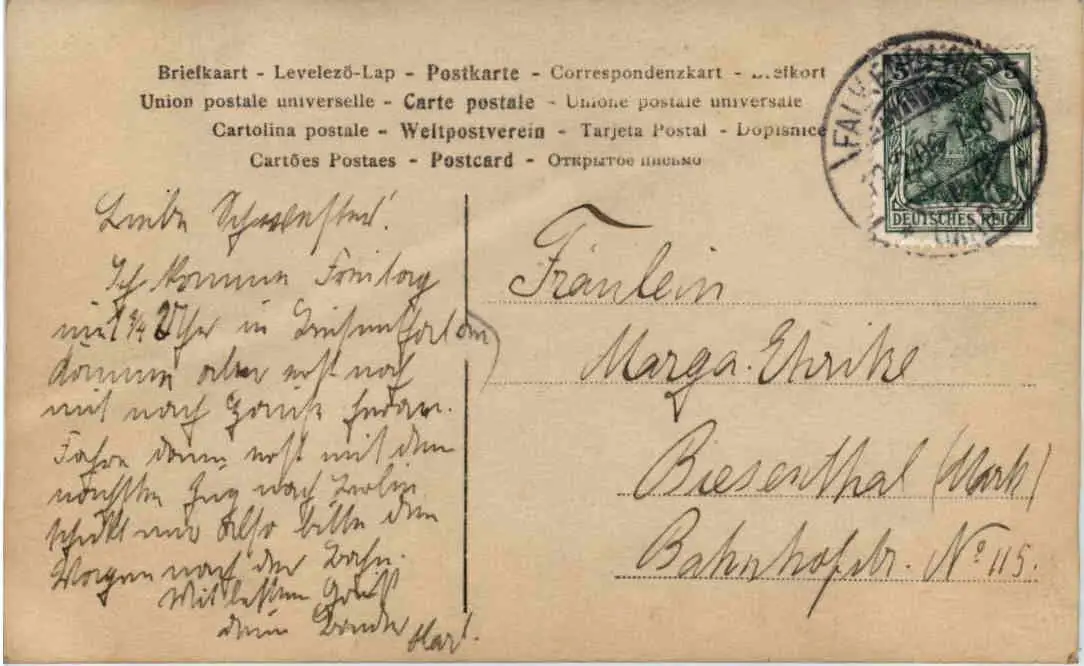 Briefkaart - Levelező-Lap - Postkarte - Correspondenzkart - Brefkort
Union postale universelle - Carte postale - Unione postale universale
Cartolina postale - Weltpostverein - Tarjeta Postal - Dopisnice
Cartões Postaes - Postcard - Открытое письмо
5 5
DEUTSCHES REICH
Liebe Schwester!
Ich komme Freitag
mit ¾ 2 Uhr in Biesenthal an
komme aber erst noch
mit nach Hause heran.
Fahre dann erst mit dem
nächsten Zug nach Berlin
schickt mir also bitte den
Wagen nach der Bahn.
Mit besten Gruß
dein Bruder
Fräulein
Marga Ehrike
Biesenthal (Mark)
Bahnhofstr. No 115.